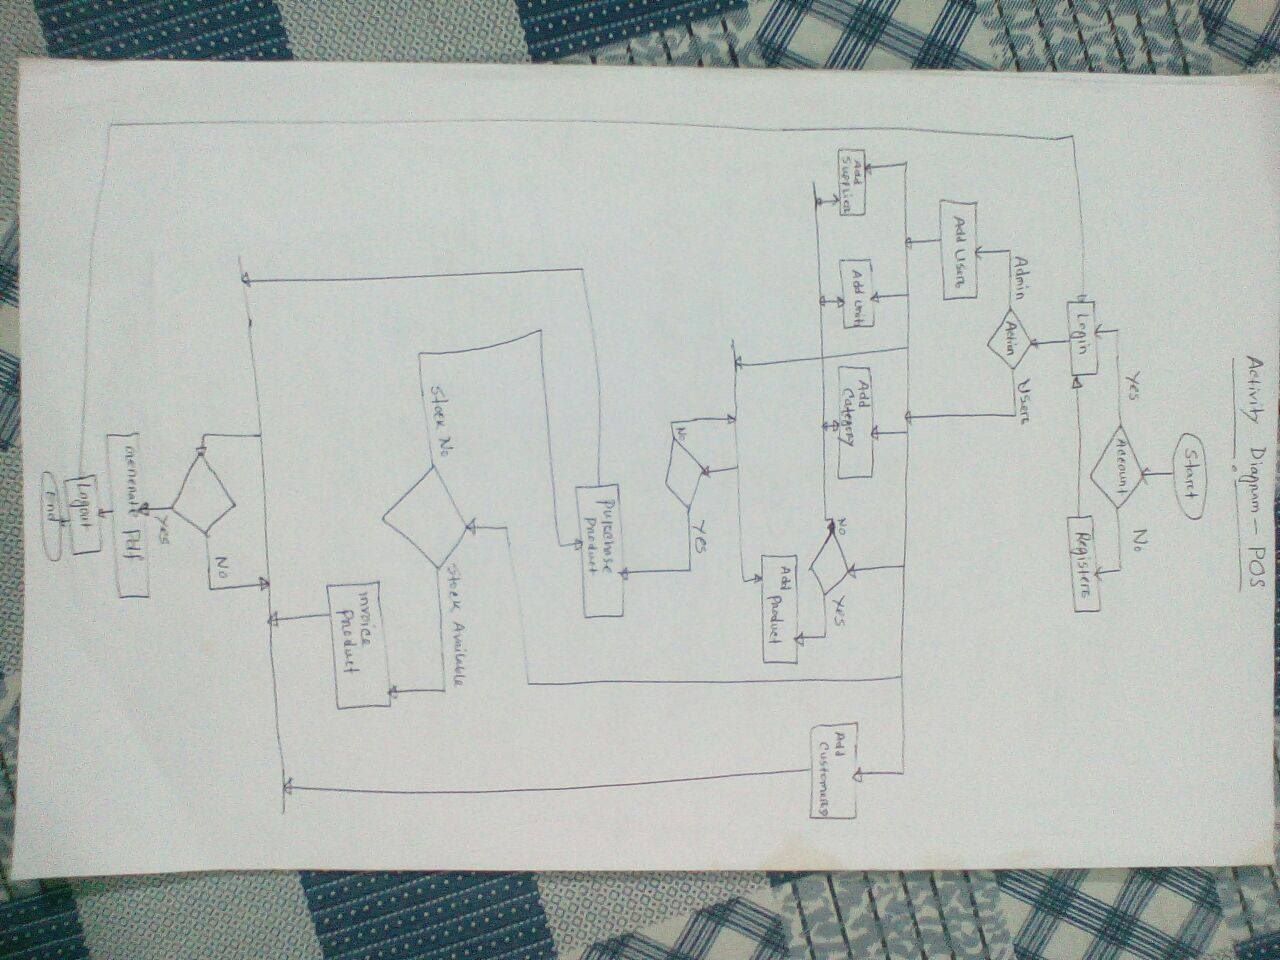 Activity Diagram - POS
Start
Account
Yes
No
Login
Registers
Action
Admin
Users
Add Users
Add
Supplier
Add Unit
Add
Category
No
Yes
Add
Customers
Add
Product
No
Yes
Purchase
Product
Stock No
Stock Available
invoice
Product
No
Yes
Menerate Pdf
Logout
End